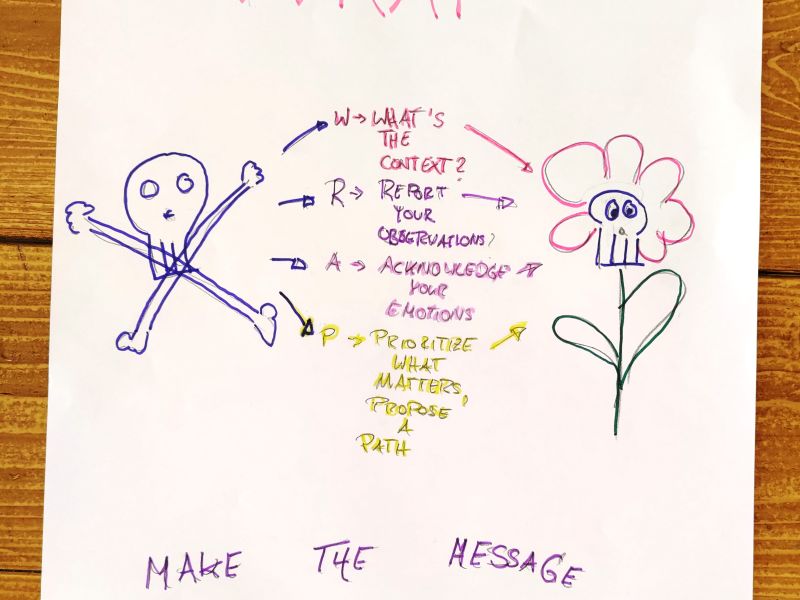 W → WHAT'S
THE
CONTEXT?
R → REPORT
YOUR
OBSERVATIONS,
A → ACKNOWLEDGE
YOUR
EMOTIONS
P → PRIORITIZE
WHAT
MATTERS,
PROPOSE
A
PATH
MAKE THE MESSAGE